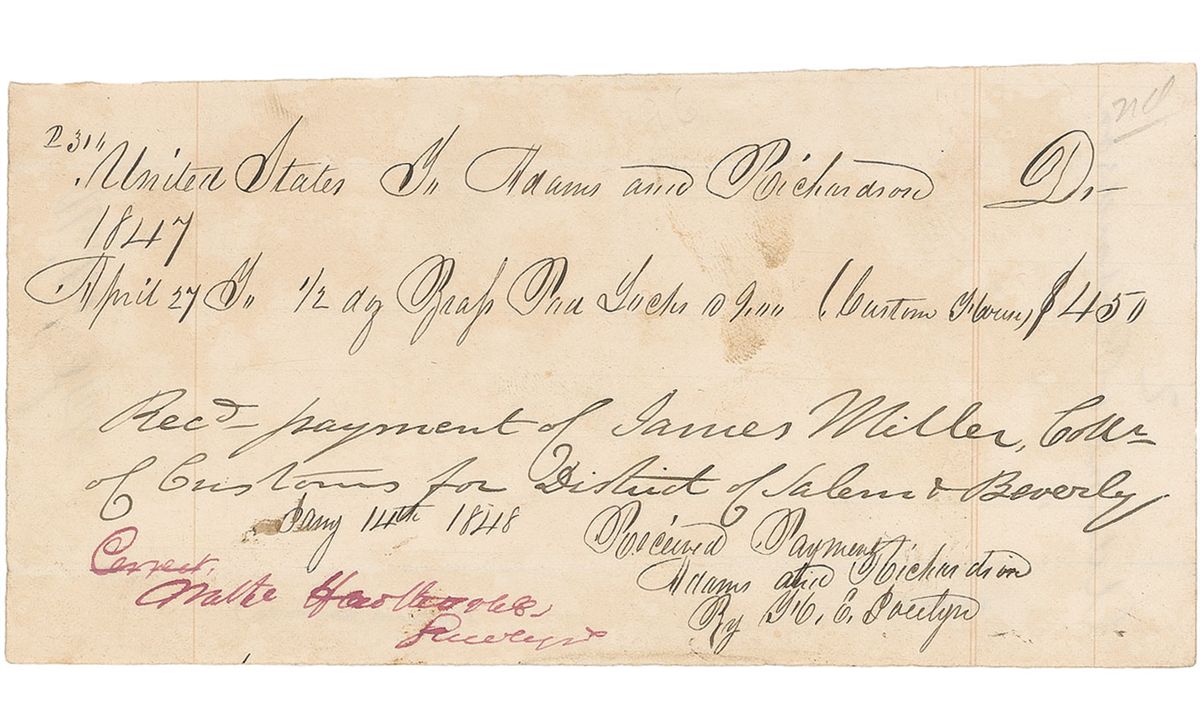 United States To Adams and Richardson Dr
1847
April 27 To 1/2 dz Brass Pad Locks @ 9.00 (Custom House) $450
Recd payment of James Miller, Collr
of Customs for District of Salem & Beverly
Jany 14th 1848
Received Payment
Adams and Richardson
By H. E. Jocelyn
Correct,
Nathl Hawthorne,
Surveyor